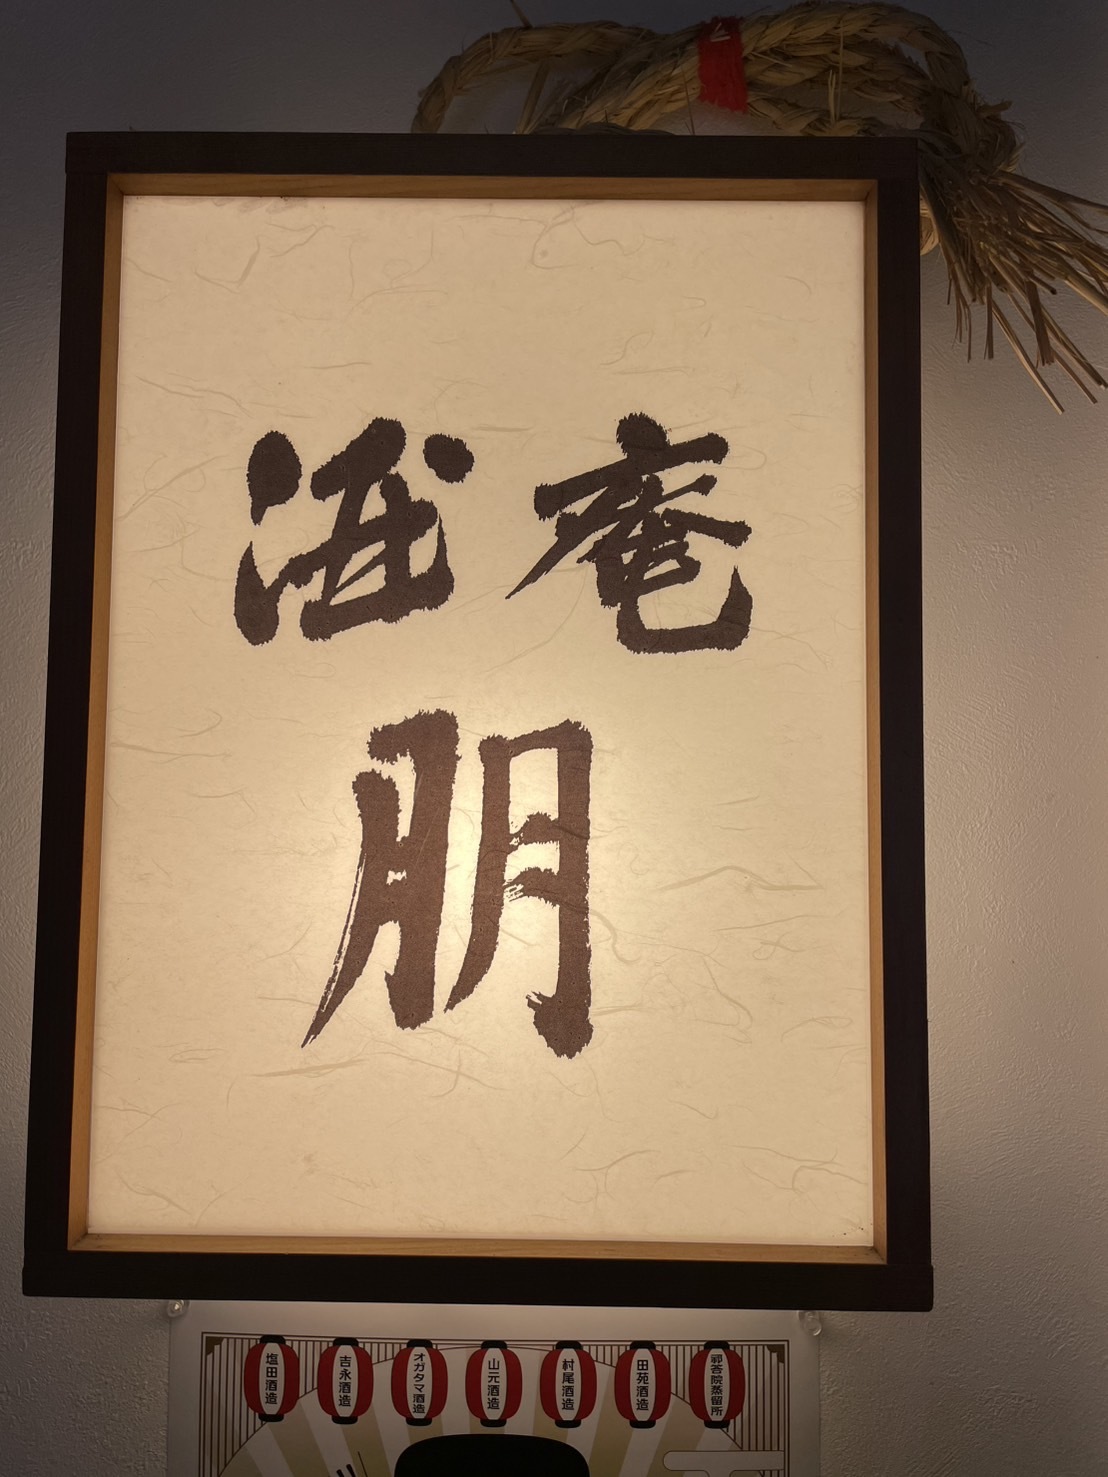 酒庵
朋
塩田酒造
吉永酒造
オガタマ酒造
山元酒造
村尾酒造
田苑酒造
祁答院蒸留所